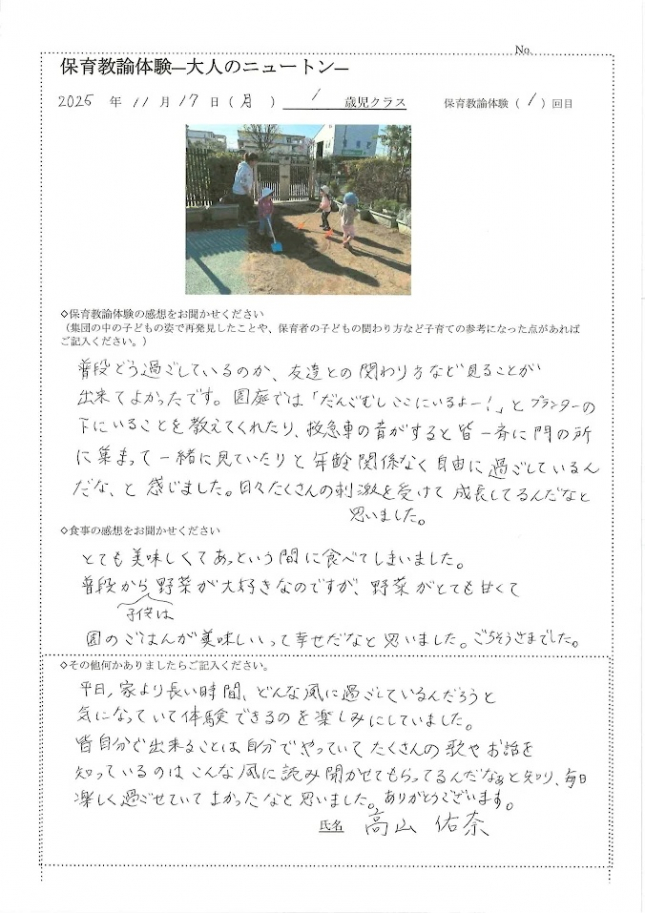 No.
保育教諭体験―大人のニュートン―
2025 年 11 月 17 日(月) 1 歳児クラス 保育教諭体験(1)回目
◇保育教諭体験の感想をお聞かせください
(集団の中の子どもの姿で再発見したことや、保育者の子どもの関わり方など子育ての参考になった点があれば
ご記入ください。)
普段どう過ごしているのか、友達との関わり方など見ることが
出来てよかったです。園庭では「だんごむしここにいるよー!」とプランターの
下にいることを教えてくれたり、救急車の音がすると皆一斉に門の所
に集まって一緒に見ていたりと年齢関係なく自由に過ごしているん
だな、と感じました。日々たくさんの刺激を受けて成長してるんだなと
思いました。
◇食事の感想をお聞かせください
とても美味しくてあっという間に食べてしまいました。
普段から野菜が大好きなのですが、野菜がとても甘くて
子供は
園のごはんが美味しいって幸せだなと思いました。ごちそうさまでした。
◇その他何かありましたらご記入ください。
平日、家より長い時間、どんな風に過ごしているんだろうと
気になっていて体験できるのを楽しみにしていました。
皆自分で出来ることは自分でやっていてたくさんの歌やお話を
知っているのはこんな風に読み聞かせてもらってるんだなぁと知り、毎日
楽しく過ごせていてよかったなと思いました。ありがとうございます。
氏名 高山 佑奈